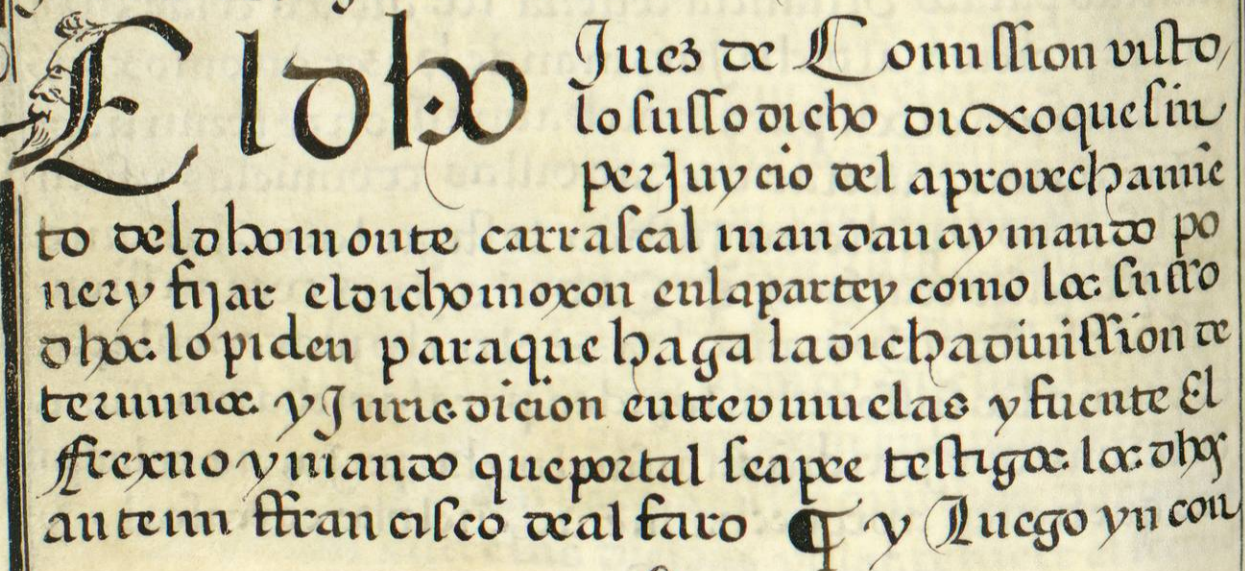 El dho Juez de Comission visto,
lo sussodicho dicxo que sin
perJuycio del aprovechamiē
to del dho monte carrascal mandaua y mando po
ner y fijar el dicho moxon en la parte y como los susso
dhos lo piden para que haga la dicha diuission de
terminos y Juridicion entre vinuelas y fuente El
ffrexno y mando que por tal sea pce testigos los dhos
ante mi ffrancisco de alfaro ¶ y Luego yn con